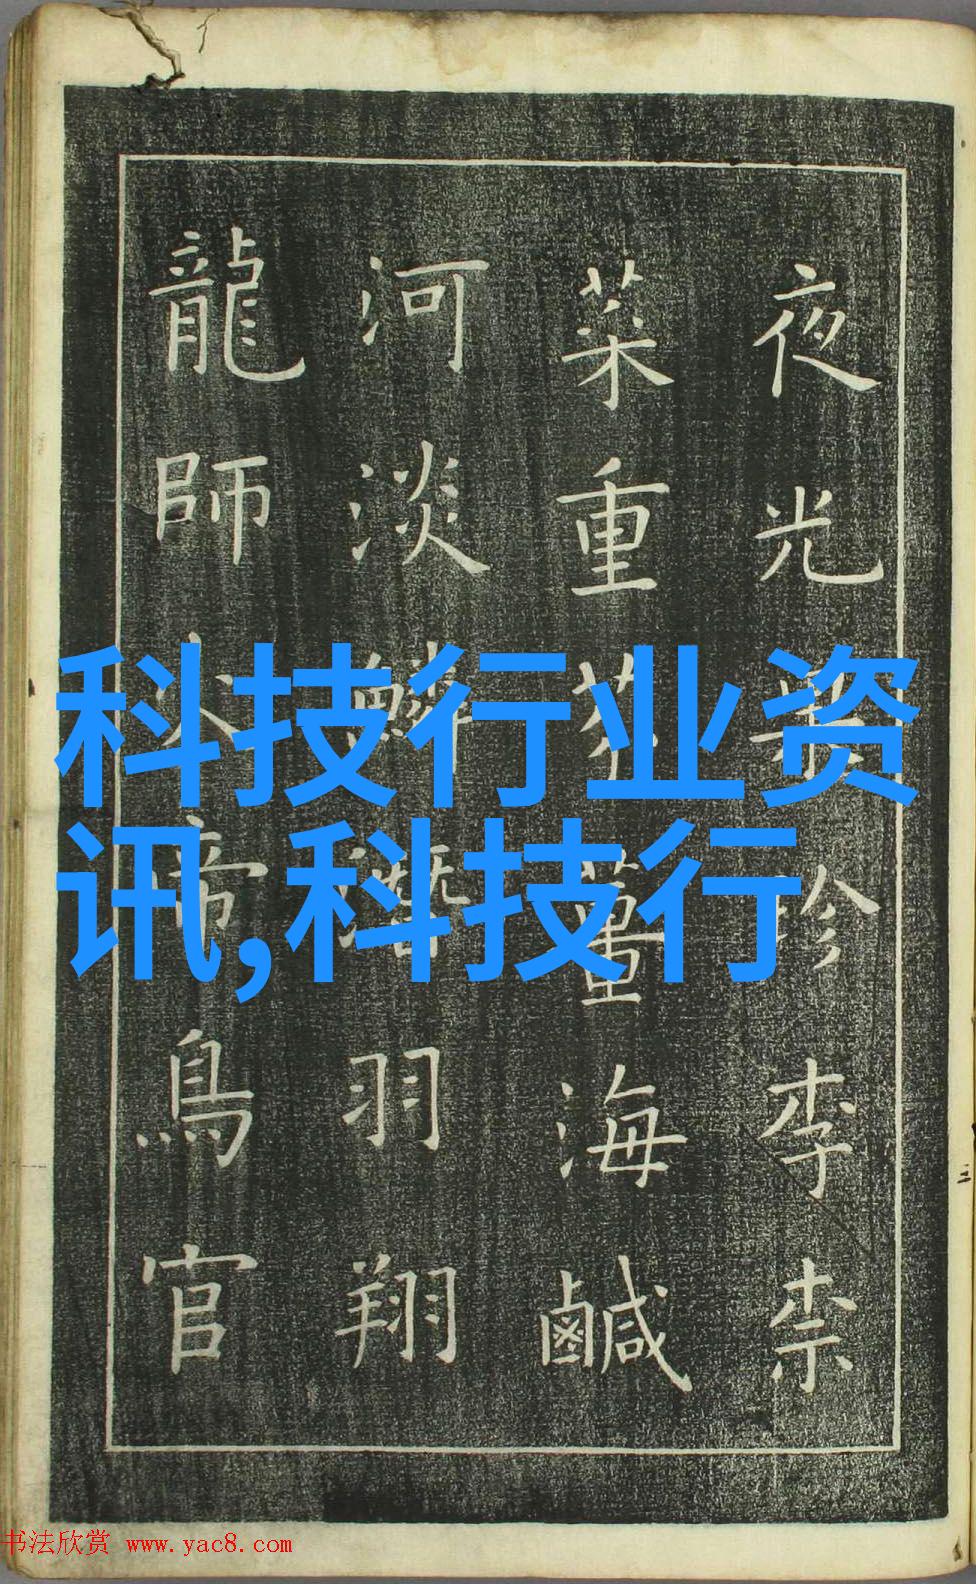 夜光果珍李柰
菜重芥薑海鹹
河淡鱗潛羽翔
龍師火帝鳥官
科技行业资
讯,科技行
书法欣赏 www.yac8.com